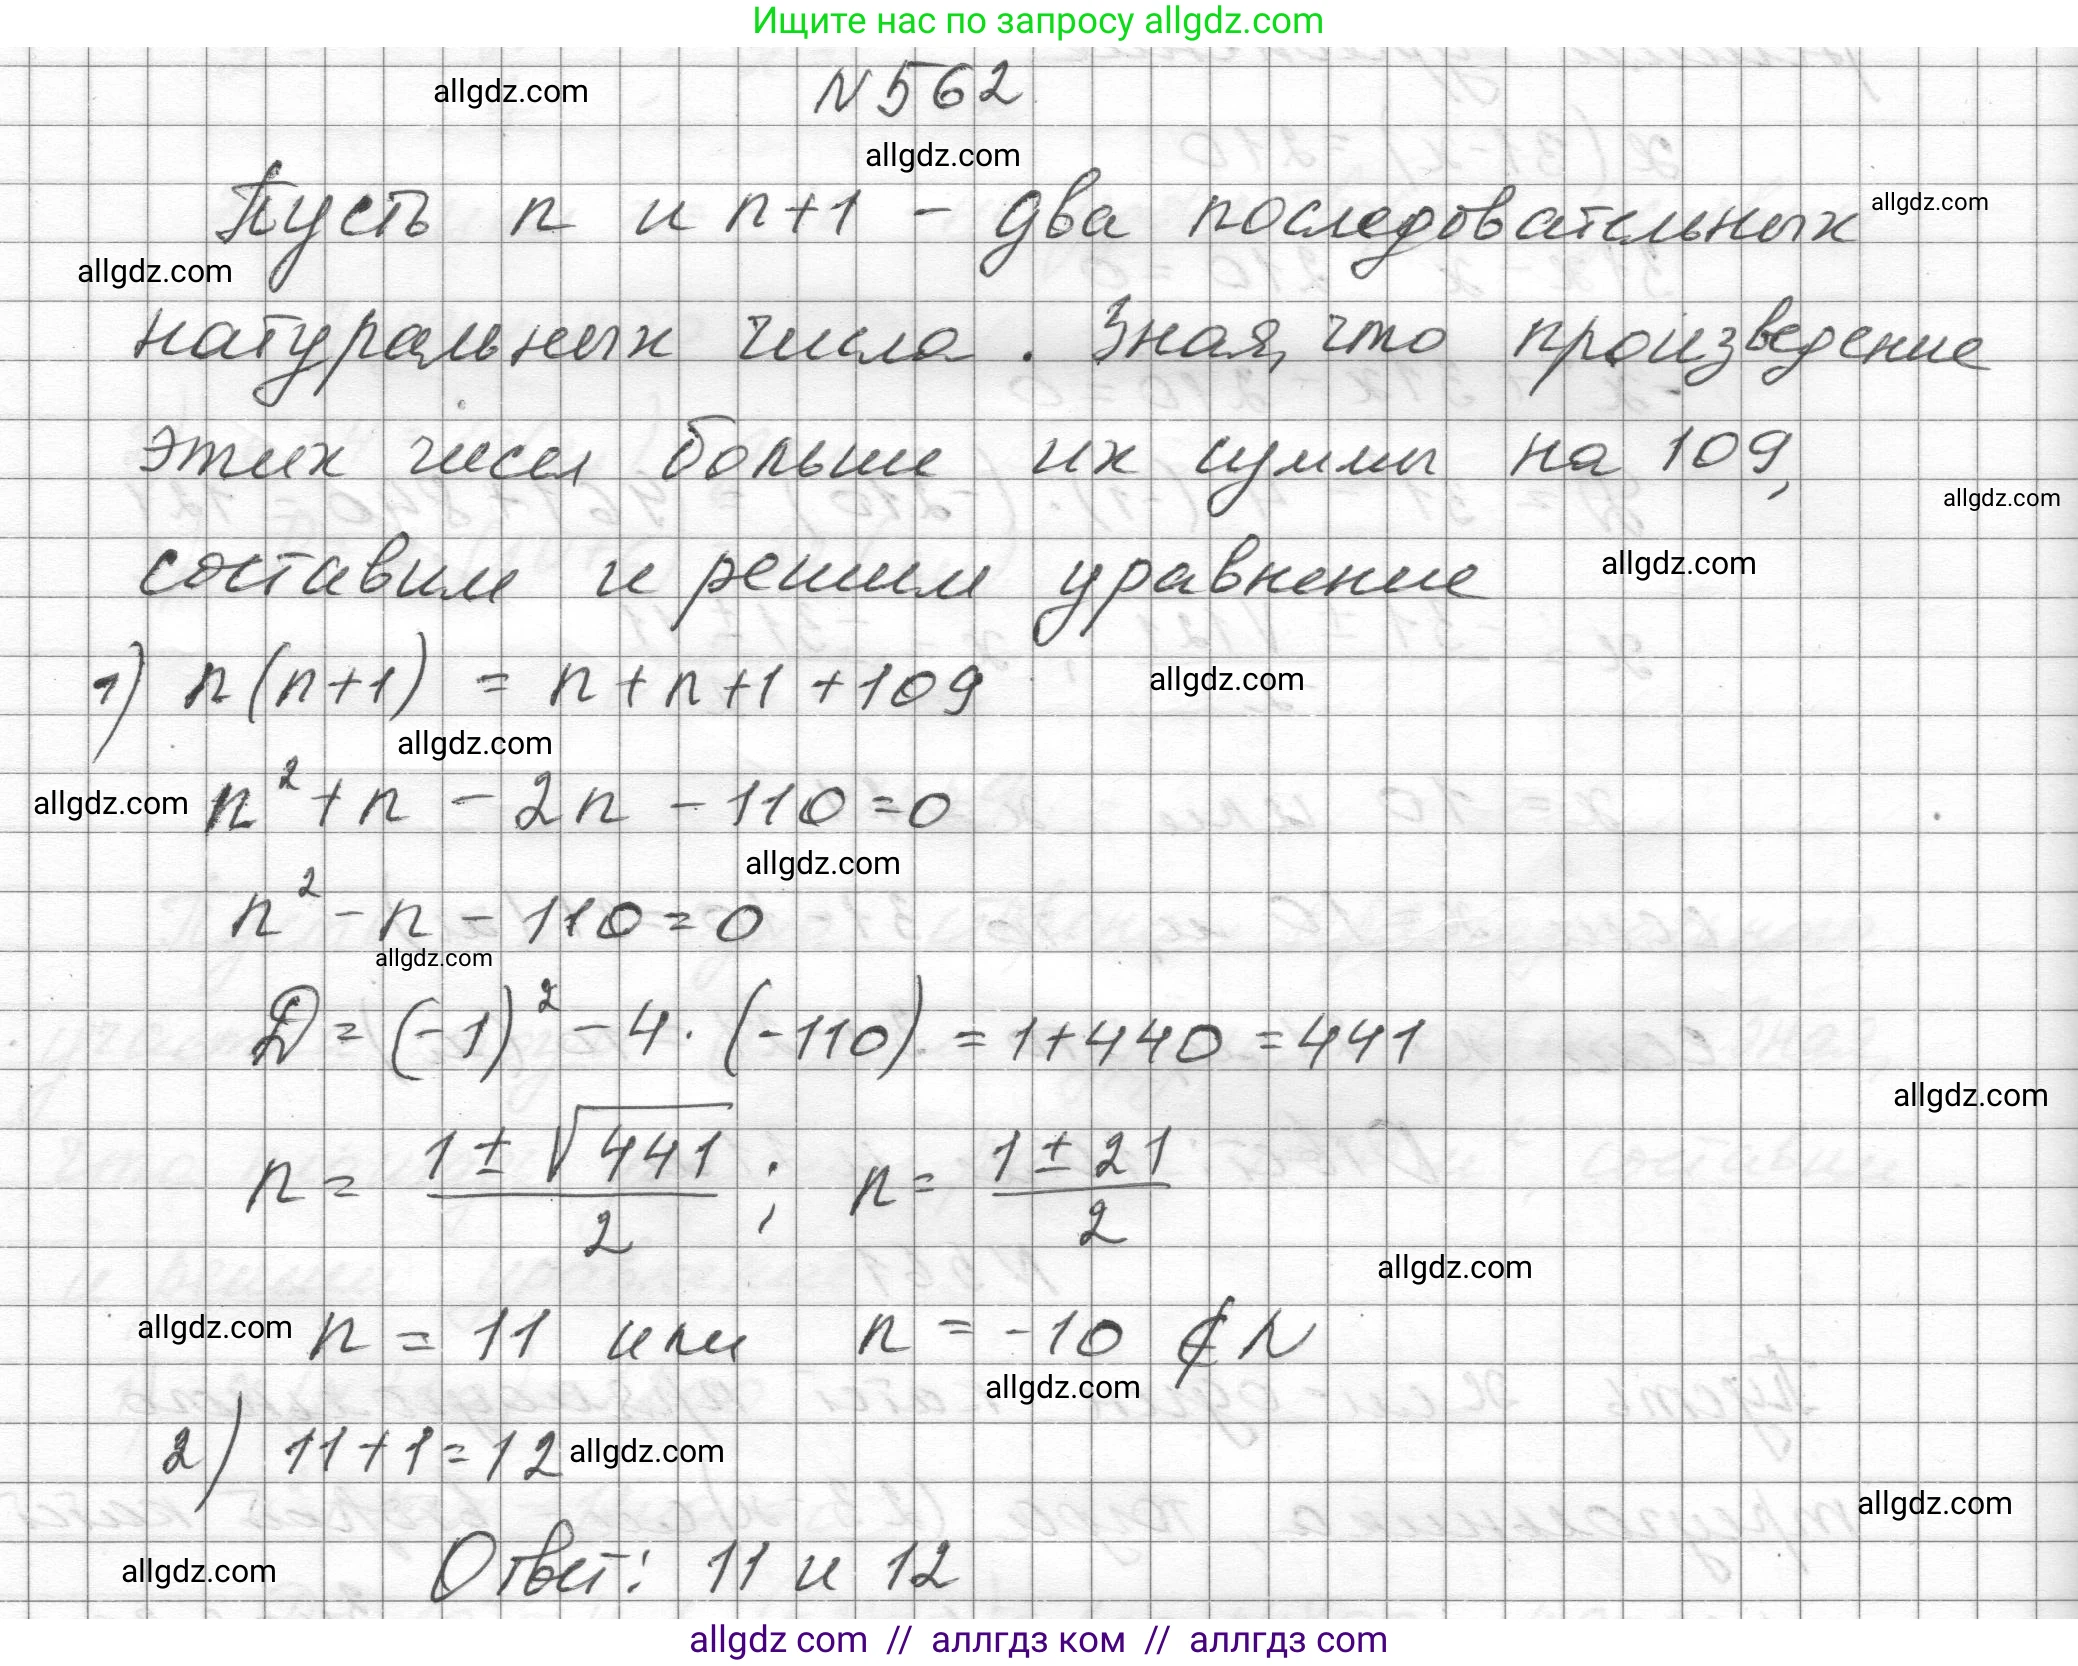 Ищите нас по запросу allgdz.com
allgdz.com
N 562
allgdz.com
Пусть n и n+1 - два последовательных
allgdz.com
allgdz.com
натуральных числа. Зная, что произведение
этих чисел больше их суммы на 109,
allgdz.com
составим и решим уравнение
allgdz.com
1) n(n+1) = n+n+1+109
allgdz.com
allgdz.com
allgdz.com
n²+n-2n-110=0
allgdz.com
n²-n-110=0
allgdz.com
D=(-1)²-4·(-110)=1+440=441
allgdz.com
n= (1±√441)/2 ; n= (1±21)/2
allgdz.com
allgdz.com
n = 11 или n = -10 ∉ N
allgdz.com
2) 11+1=12
allgdz.com
allgdz.com
allgdz.com
Ответ: 11 и 12
allgdz com // аллгдз ком // аллгдз com